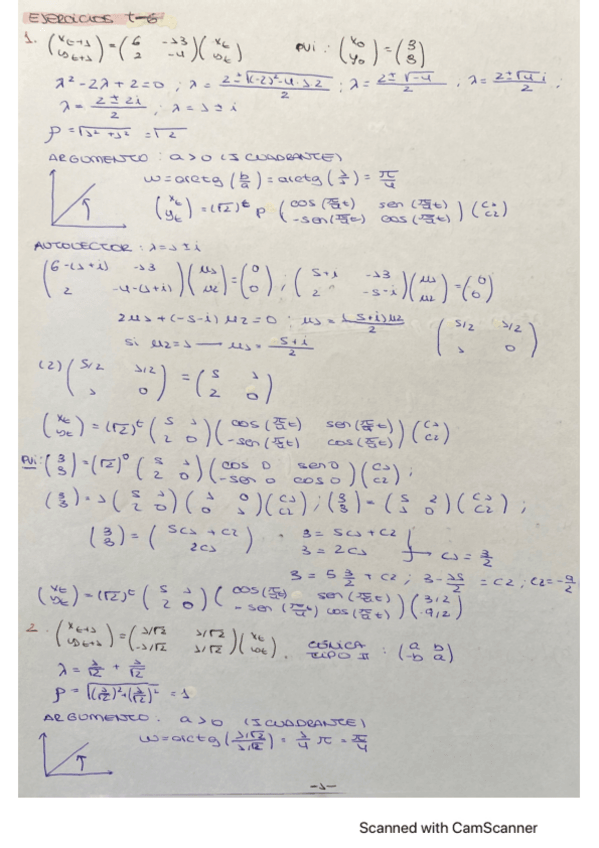 EJERCICIOS t-6
1. (x_{t+1} / y_{t+1}) = (6 -13 / 2 -4)(x_t / y_t) PVI: (x_0 / y_0) = (3 / 3)
λ² - 2λ + 2 = 0 ; λ = (2 ± √((-2)² - 4·1·2))/2 ; λ = (2 ± √-4)/2 , λ = (2 ± √4 i)/2 ;
λ = (2 ± 2i)/2 ; λ = 1 ± i
ρ = √(1² + 1²) = √2
ARGUMENTO : a>0 (I CUADRANTE)
ω = arctg (b/a) = arctg (1/1) = π/4
(x_t / y_t) = (√2)^t P (cos(π/4 t) sen(π/4 t) / -sen(π/4 t) cos(π/4 t)) (C1 / C2)
AUTOVECTOR : λ = 1 ± i
(6-(1+i) -13 / 2 -4-(1+i)) (μ1 / μ2) = (0 / 0) ; (5-i -13 / 2 -5-i) (μ1 / μ2) = (0 / 0)
2μ1 + (-5-i) μ2 = 0 ; μ1 = (5+i)μ2 / 2
si μ2 = 1 → μ1 = (5+i)/2 (5/2 1/2 / 1 0)
(2) (5/2 1/2 / 1 0) = (5 1 / 2 0)
(x_t / y_t) = (√2)^t (5 1 / 2 0) (cos(π/4 t) sen(π/4 t) / -sen(π/4 t) cos(π/4 t)) (C1 / C2)
PVI: (3 / 3) = (√2)^0 (5 1 / 2 0) (cos 0 sen 0 / -sen 0 cos 0) (C1 / C2) ;
(3 / 3) = 1 (5 1 / 2 0) (1 0 / 0 1) (C1 / C2) ; (3 / 3) = (5 2 / 1 0) (C1 / C2) ;
(3 / 3) = (5C1 + C2 / 2C1) . 3 = 5C1 + C2
3 = 2C1 → C1 = 3/2
3 = 5 3/2 + C2 ; 3 - 15/2 = C2 ; C2 = -9/2
(x_t / y_t) = (√2)^t (5 1 / 2 0) (cos(π/4 t) sen(π/4 t) / -sen(π/4 t) cos(π/4 t)) (3/2 / -9/2)
2. (x_{t+1} / y_{t+1}) = (1/√2 1/√2 / -1/√2 1/√2) (x_t / y_t) . CÓNICA TIPO II : (a b / -b a)
λ = 1/√2 + 1/√2
ρ = √((1/√2)² + (1/√2)²) = 1
ARGUMENTO : a>0 (I CUADRANTE)
ω = arctg (1/√2 / 1/√2) = 1/4 π = π/4
-1-
Scanned with CamScanner